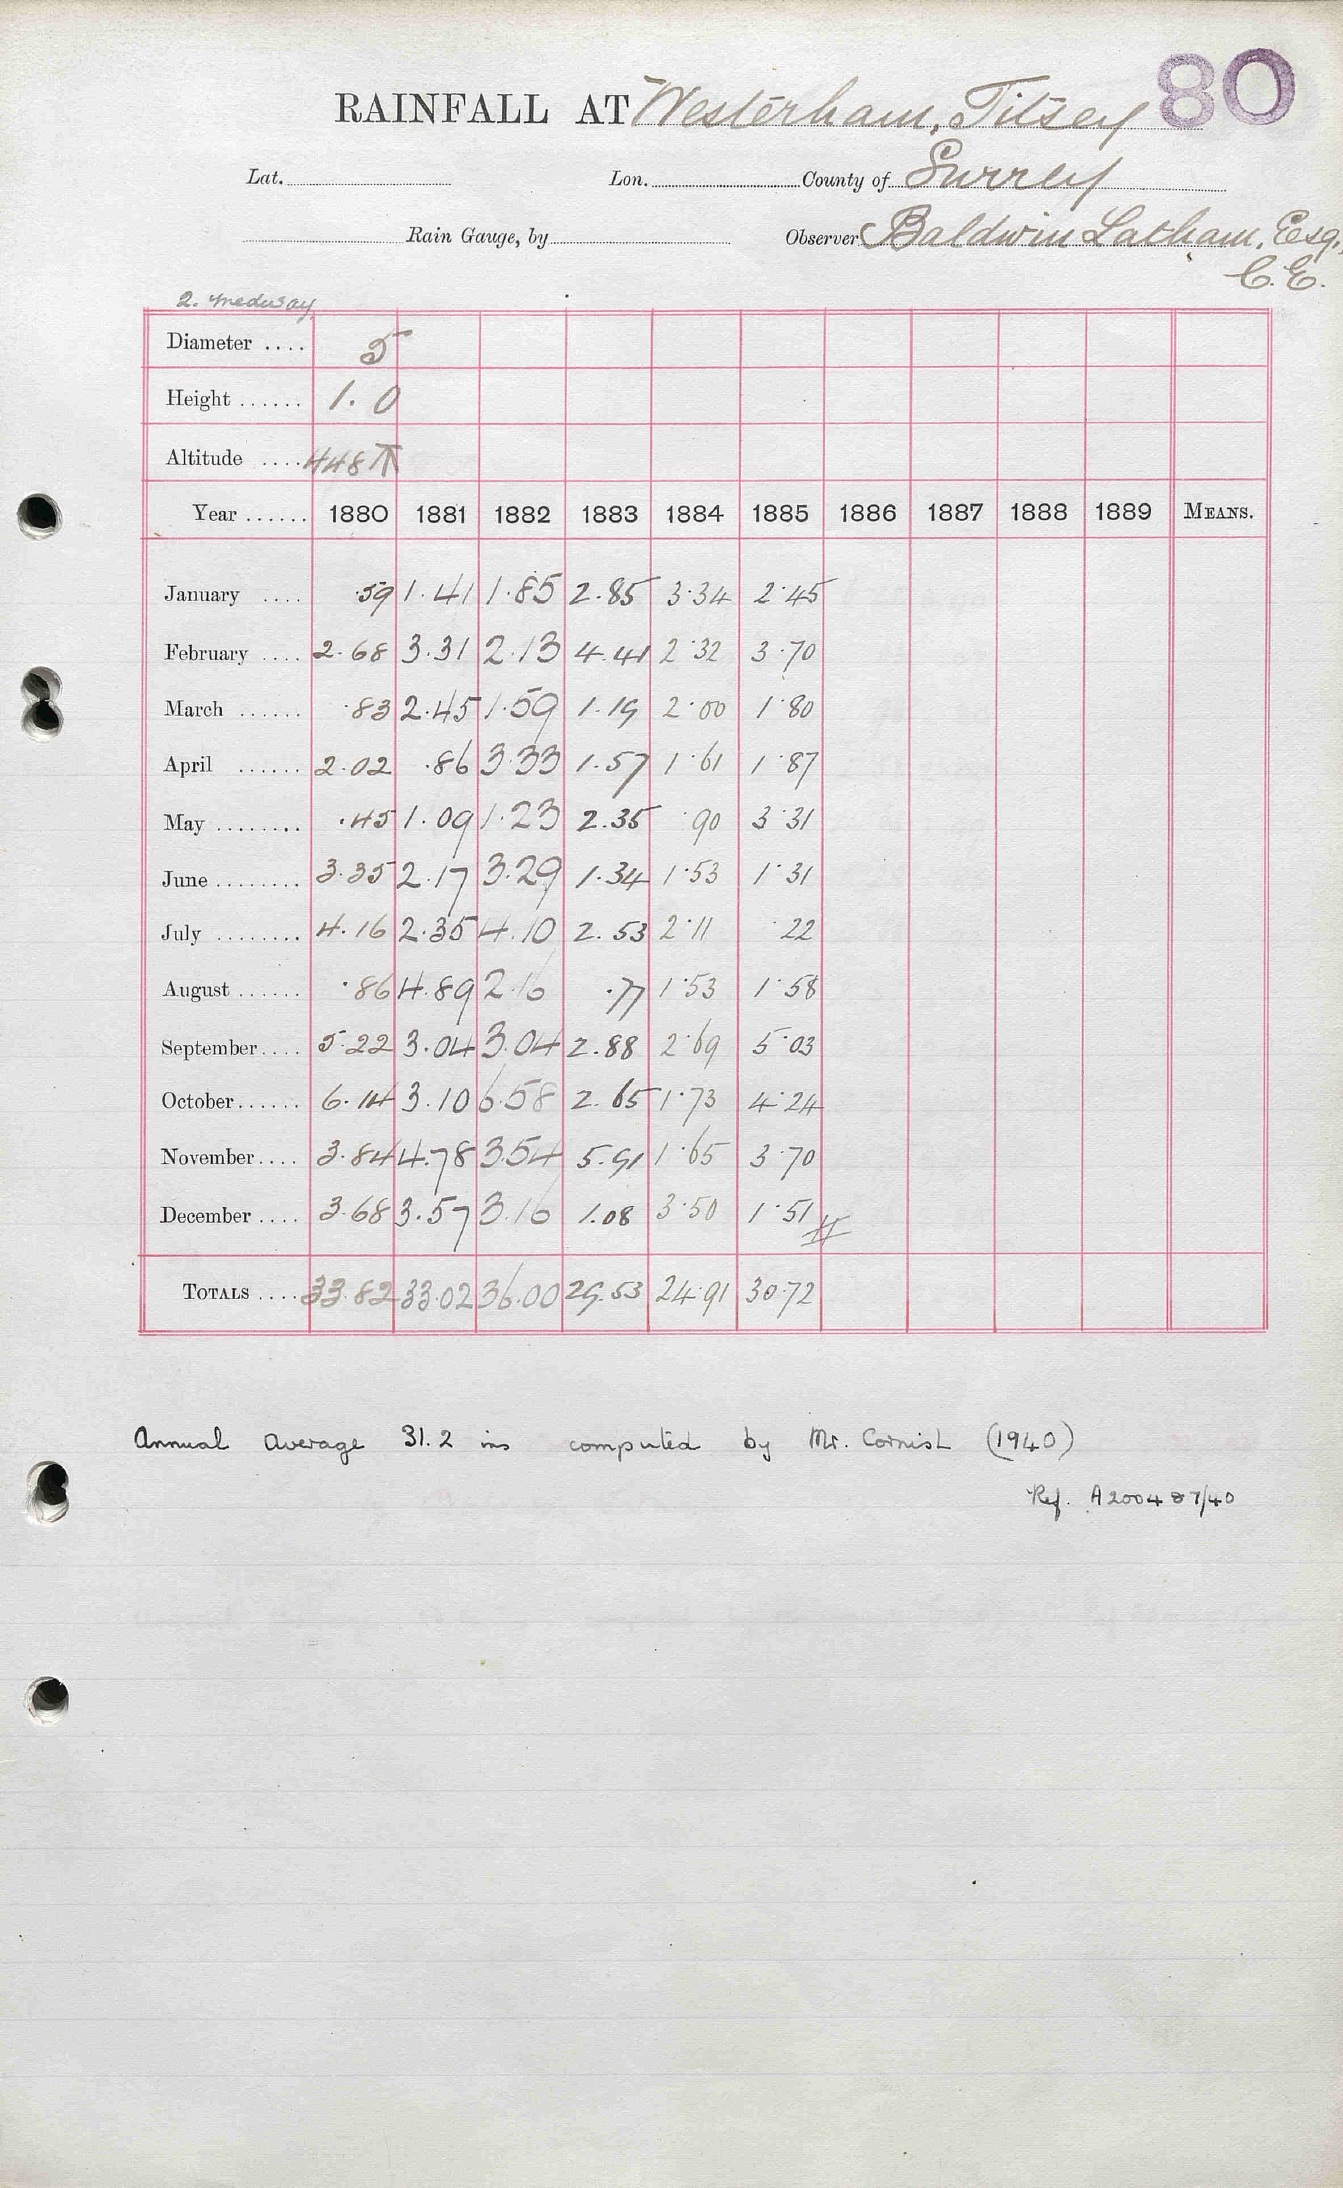 80
RAINFALL AT Westerham, Titsey
Lat. Lon. County of Surrey
Rain Gauge, by Observer Baldwin Latham, Esq.,
C.E.
2. Medway
Diameter .... 5
Height ...... 1. 0
Altitude .... 448
Year ...... 1880 1881 1882 1883 1884 1885 1886 1887 1888 1889 MEANS.
January .... .59 1.41 1.85 2.85 3.34 2.45
February .... 2.68 3.31 2.13 4.41 2.32 3.70
March ...... .83 2.45 1.59 1.19 2.00 1.80
April ...... 2.02 .86 3.33 1.57 1.61 1.87
May ........ .45 1.09 1.23 2.35 .90 3.31
June ........ 3.35 2.17 3.29 1.34 1.53 1.31
July ........ 4.16 2.35 4.10 2.53 2.11 .22
August ...... .86 4.89 2.16 .77 1.53 1.58
September .... 5.22 3.04 3.04 2.88 2.69 5.03
October ...... 6.14 3.10 6.58 2.65 1.73 4.24
November .... 3.84 4.78 3.54 5.91 1.65 3.70
December .... 3.68 3.57 3.16 1.08 3.50 1.51
TOTALS .... 33.82 33.02 36.00 29.53 24.91 30.72
Annual average 31.2 ins computed by Mr. Cornish (1940)
Ref. A200487/40